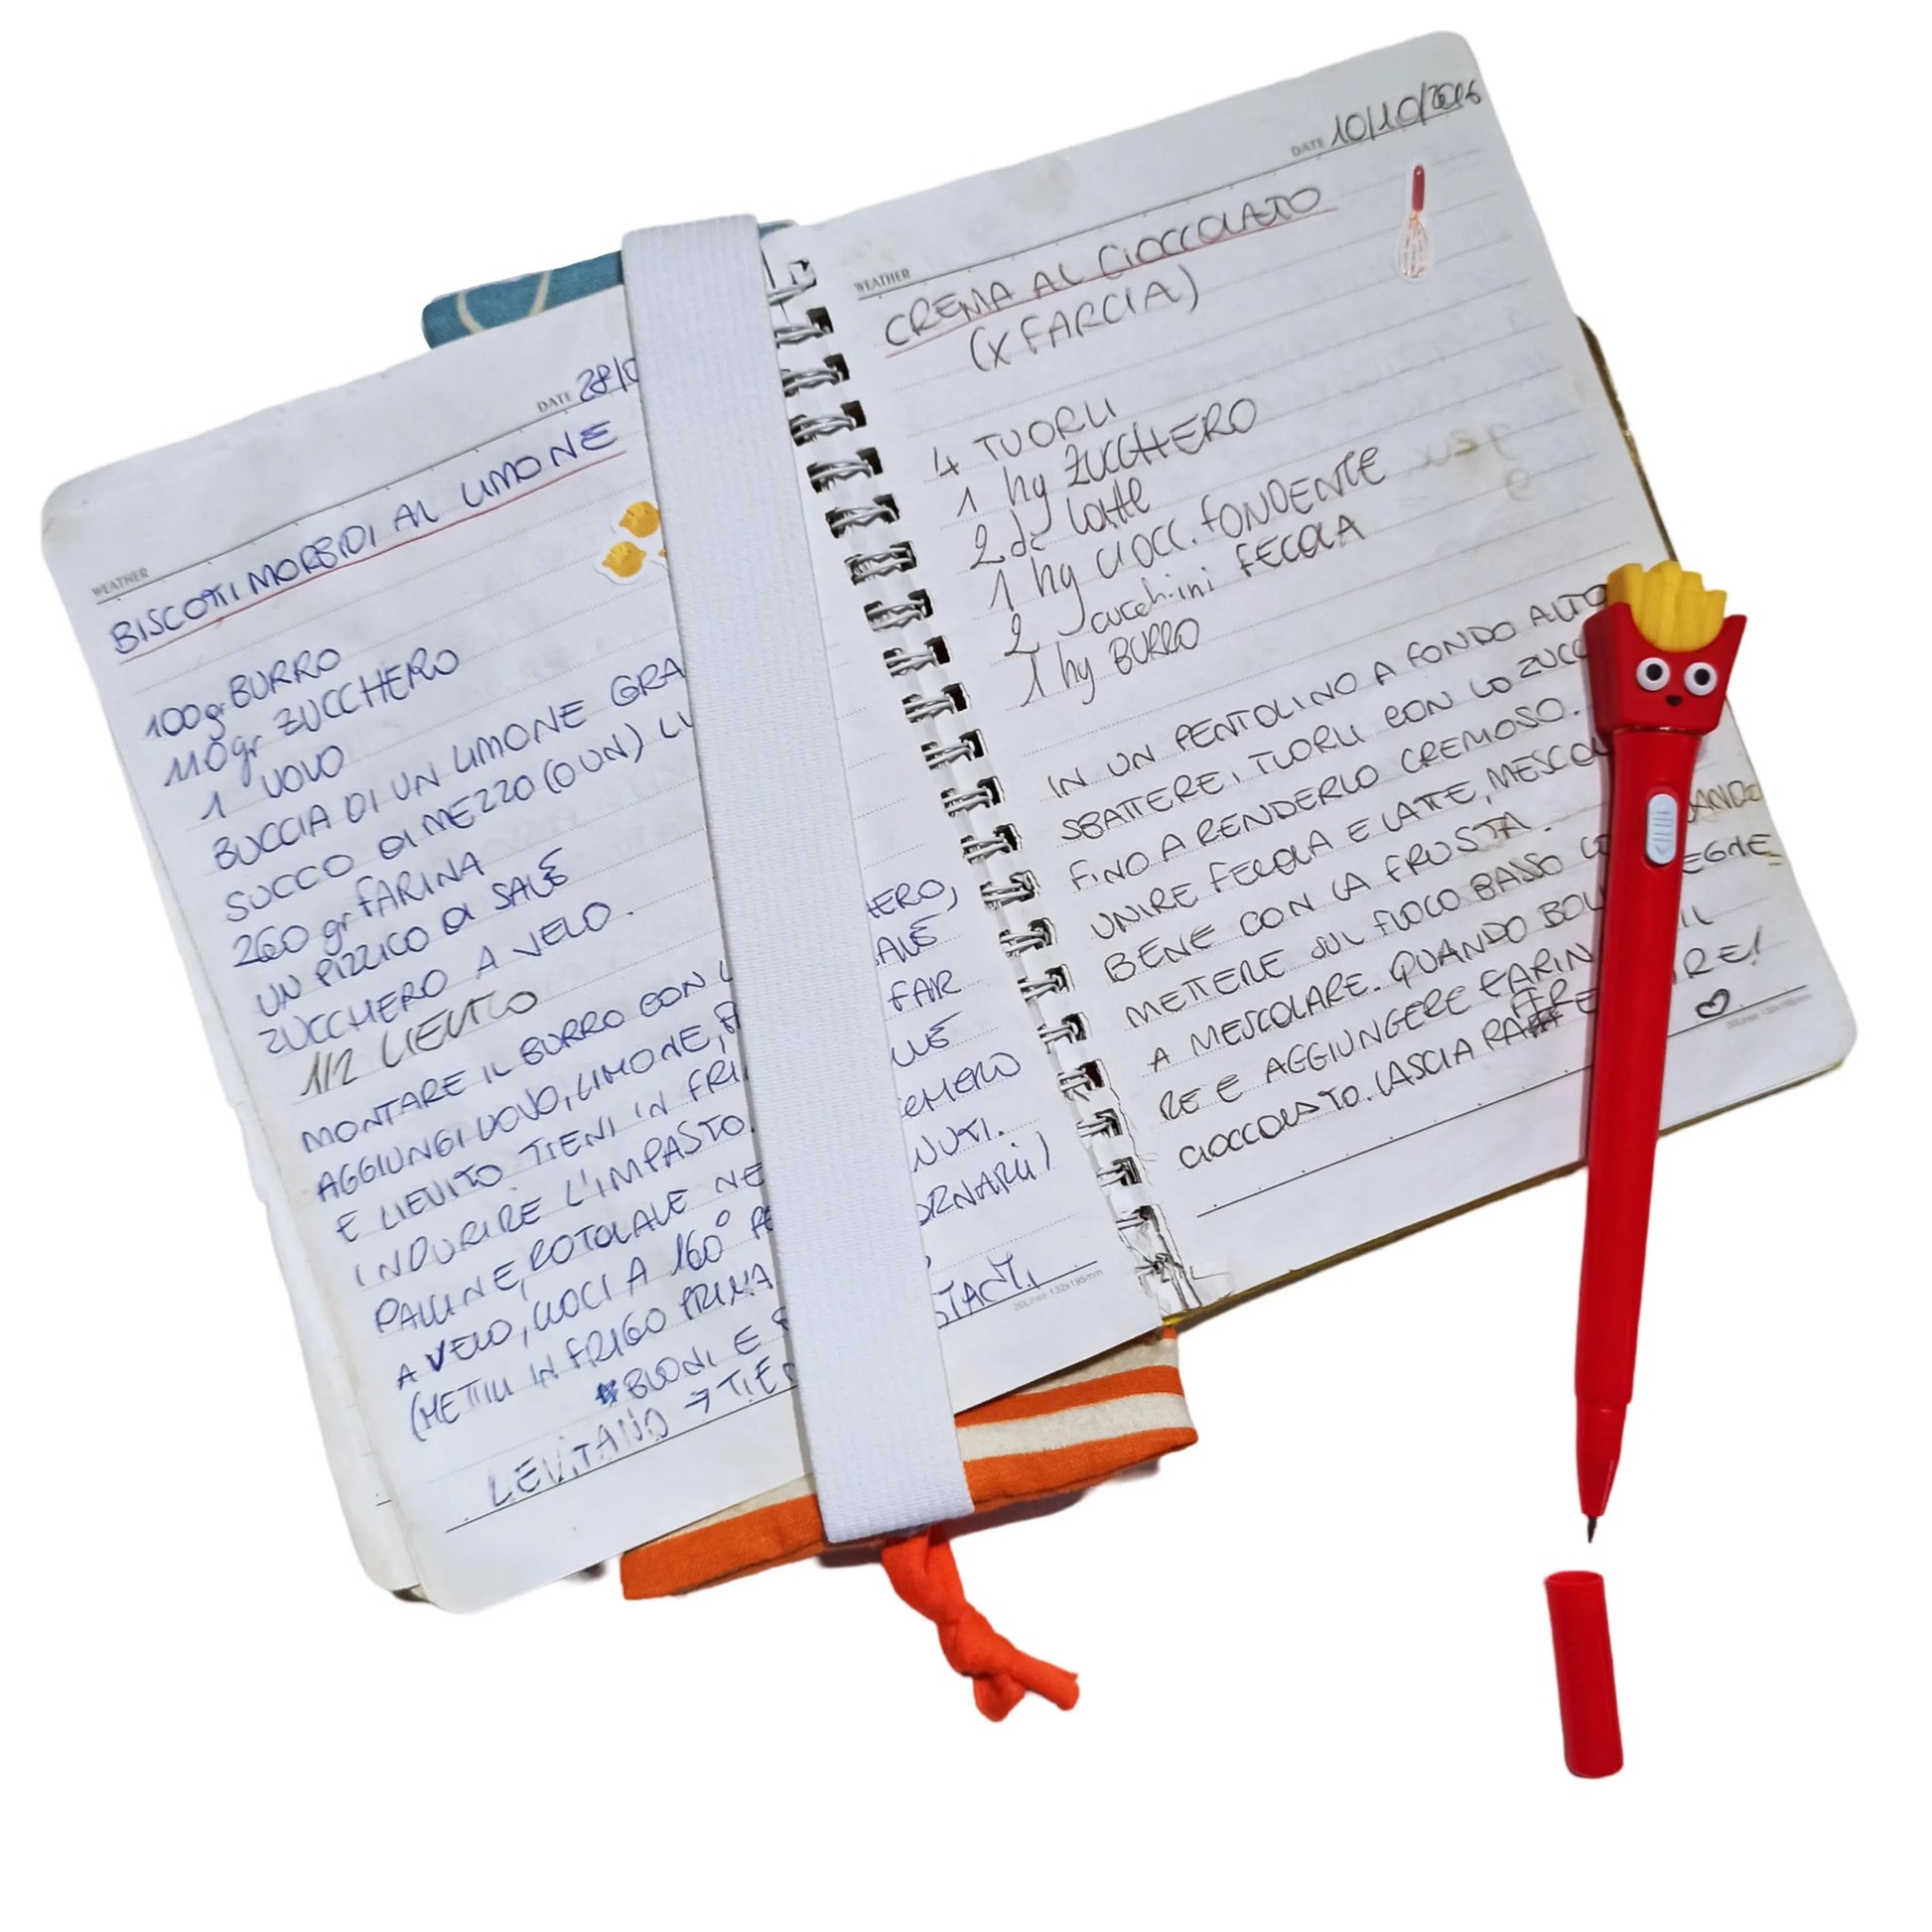 WEATHER
DATE 28/0
BISCOTTI MORBIDI AL LIMONE
100gr BURRO
110gr ZUCCHERO
1 UOVO
BUCCIA DI UN LIMONE GRA
SUCCO DI MEZZO (O UN) LI
260 gr FARINA
UN PIZZICO DI SALE
ZUCCHERO A VELO.
1/2 LIEVITO
MONTARE IL BURRO CON L HERO,
AGGIUNGI UOVO, LIMONE, F ALE
E LIEVITO. TIENI IN FRI FAR
INDURIRE L'IMPASTO. LLE
PALLINE, ROTOLALE NE CHERO
A VELO, CUOCI A 160° PE NUTI.
(METTILI IN FRIGO PRIMA ORNARLI)
BUONI E STANTI
LEVITANO → TIEN
20Lines 132x195mm
WEATHER
DATE 10/10/2016
CREMA AL CIOCCOLATO
(X FARCIA)
4 TUORLI
1 hg ZUCCHERO
2 dl latte
1 hg CIOCC. FONDENTE
2 cucchini FECOLA
1 hg BURRO
IN UN PENTOLINO A FONDO ALTO
SBATTERE I TUORLI CON LO ZUCC
FINO A RENDERLO CREMOSO.
UNIRE FECOLA E LATTE, MESCOL
BENE CON LA FRUSTA. ANDO
METTERE SUL FUOCO BASSO CO EGNE
A MESCOLARE. QUANDO BOL IL
RE E AGGIUNGERE FARIN RE!
CIOCCOLATO. LASCIA RAFFRE